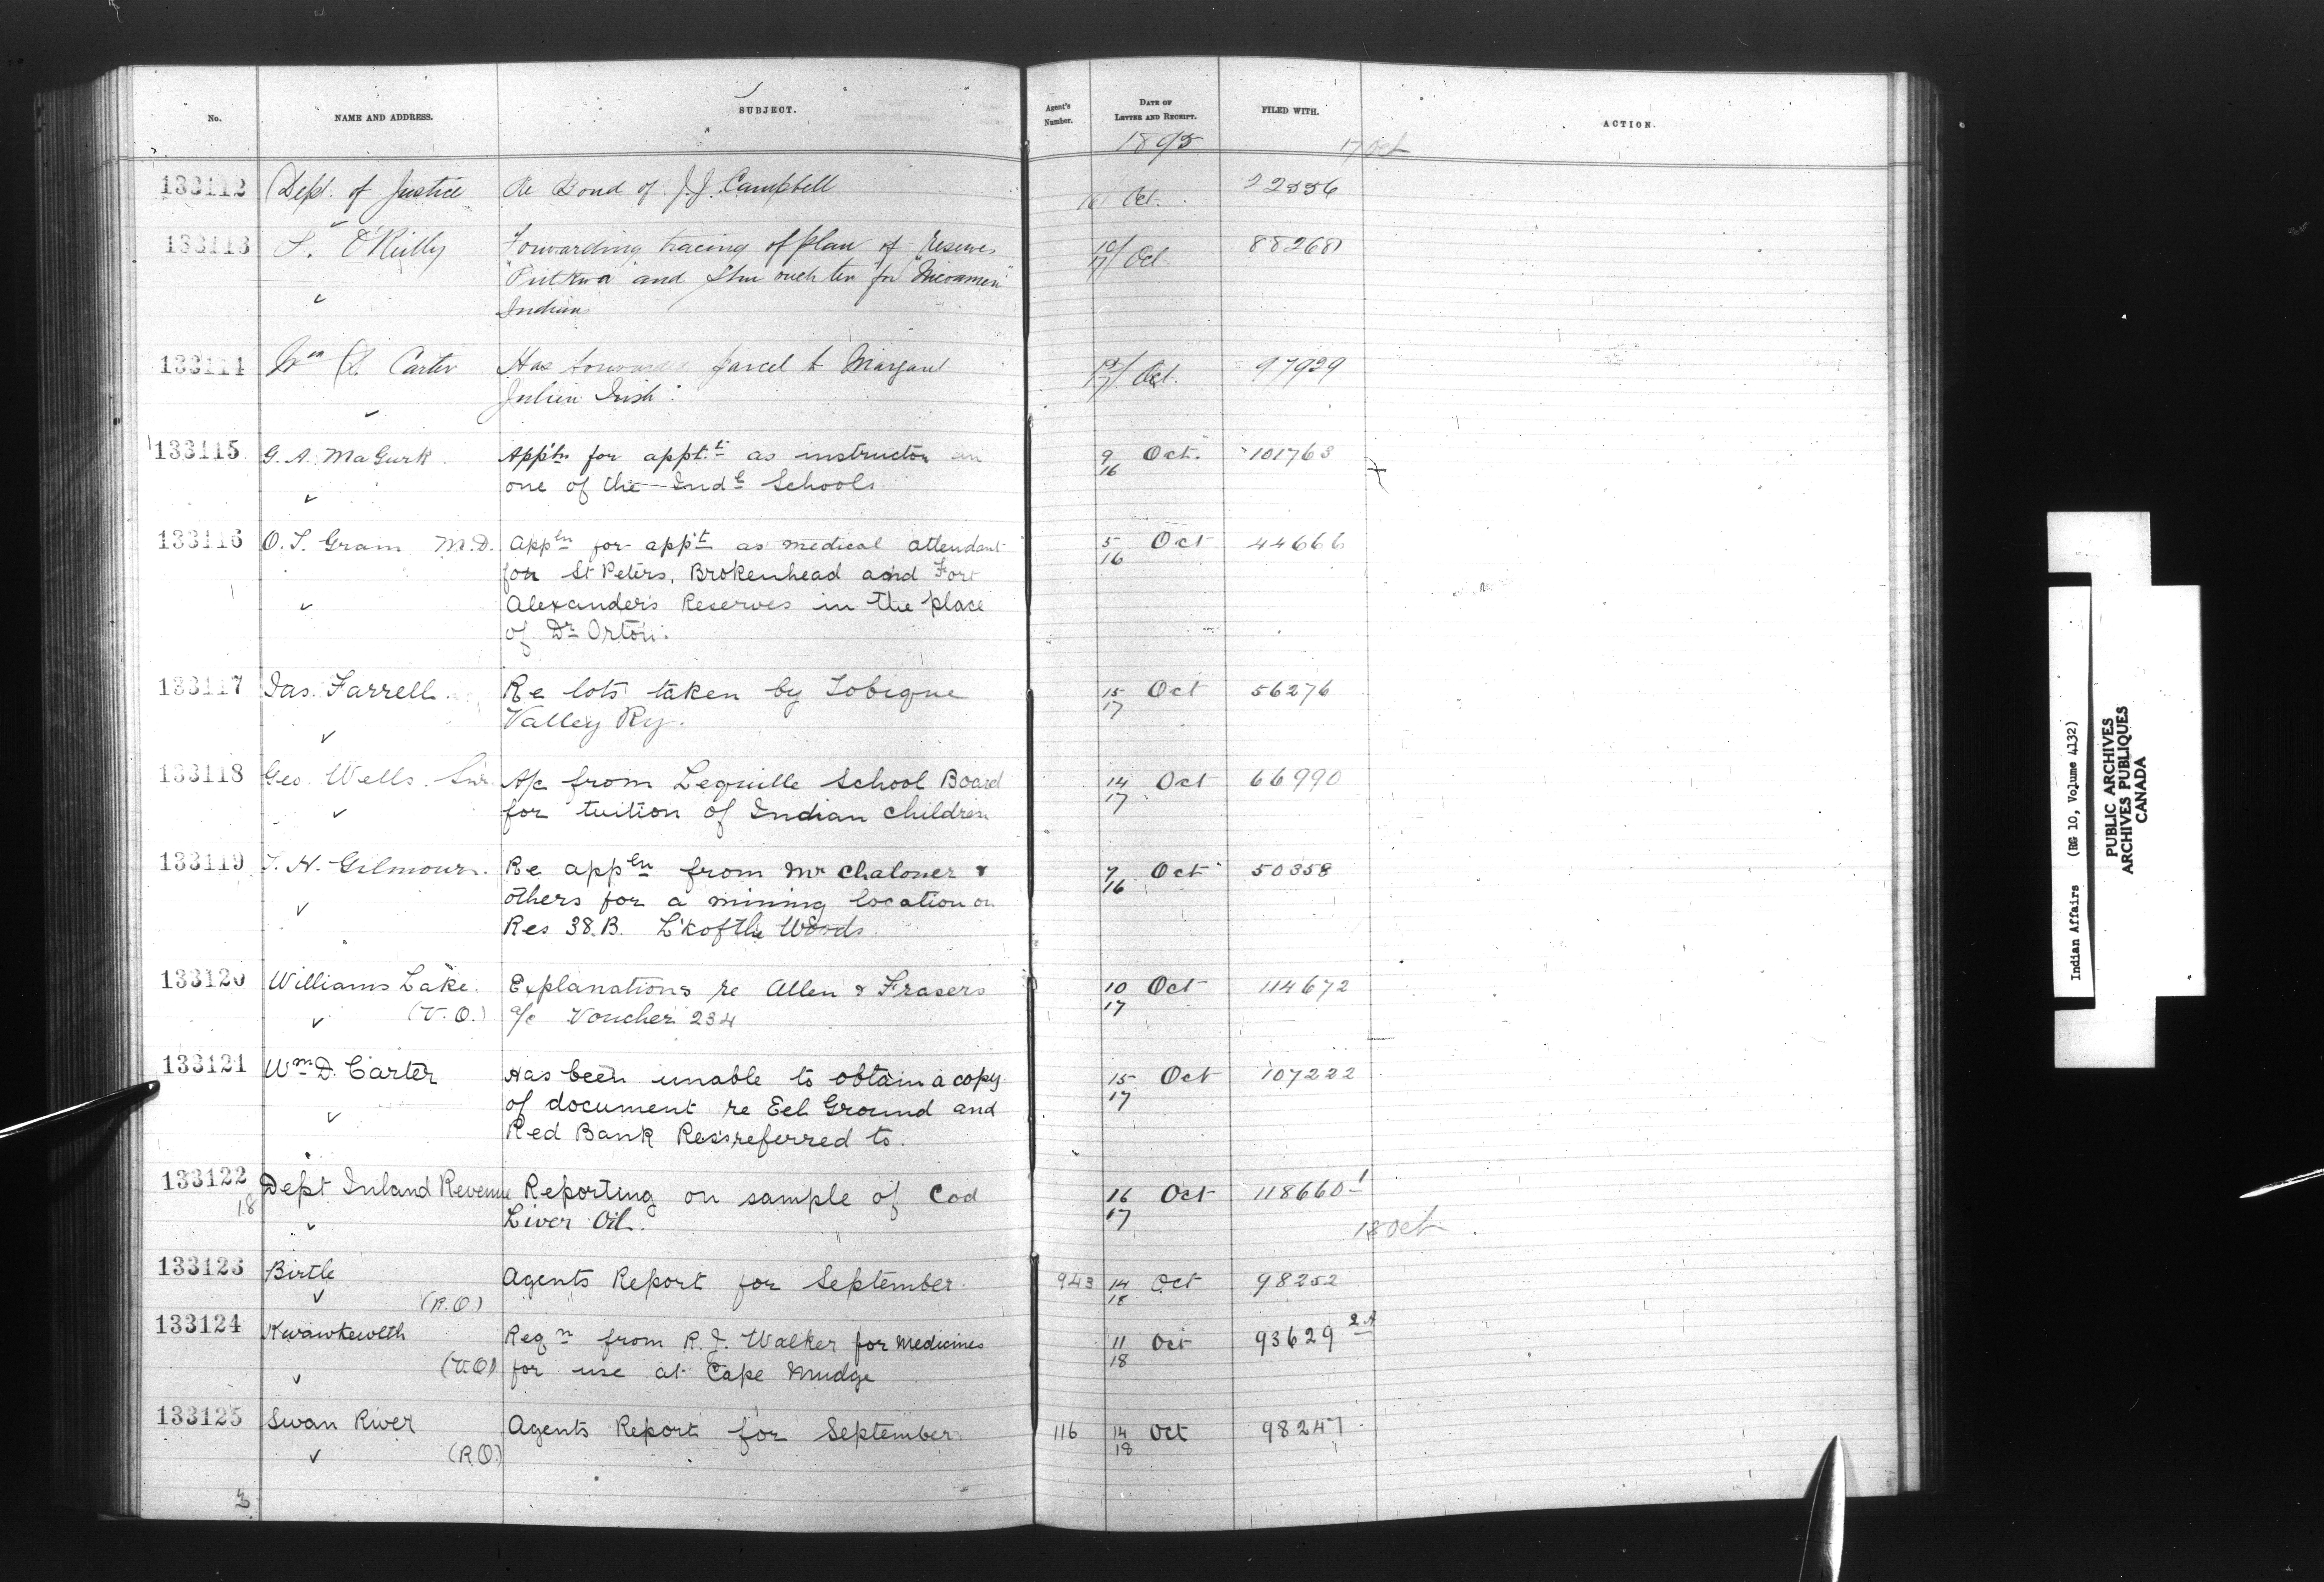 No. NAME AND ADDRESS. SUBJECT. Agent's Number. DATE OF LETTER AND RECEIPT. FILED WITH. ACTION.
1895 17 Oct
133112 Dept. of Justice Re Bond of J.J. Campbell 16 Oct. 22556
133113 P. O'Reilly Forwarding tracing of plan of reserves 10/17 Oct 88268
and for "Nicoamen"
Indians
133114 Wm D. Carter Has forwarded parcel to Margaret 17 Oct. 97929
Julien Irish.
133115 G. A. MaGurk App'tn for appt.t as instructor in 9/16 Oct. 101763
✓ one of the Ind. Schools
133116 O. I. Grain M.D. Appln for app't as medical attendant 5/16 Oct 44666
for St Peters, Brokenhead and Fort
✓ Alexander's Reserves in the place
of Dr Orton.
133117 Jas. Farrell Re lots taken by Tobique 15/17 Oct 56276
✓ Valley Ry.
133118 Geo. Wells Snr. A/c from Lequille School Board 14/17 Oct 66990
✓ for tuition of Indian Children
133119 T. H. Gilmour. Re appln from Mr Chaloner & 7/16 Oct 50358
✓ others for a mining location on
Res 38.B. L'k of the Woods.
133120 Williams Lake. Explanations re Allen & Frasers 10/17 Oct 114672
✓ (V.O.) a/c Voucher 234
133121 Wm D. Carter Has been unable to obtain a copy 15/17 Oct 107222
✓ of document re Eel Ground and
Red Bank Res's referred to.
133122 Dept Inland Revenue Reporting on sample of Cod 16/17 Oct 118660-1
18 ✓ Liver Oil.
18 Oct.
133123 Birtle Agents Report for September. 943 14/18 Oct 98252
✓ (R.O)
133124 Kwawkewlth Reqn from R. J. Walker for Medicines 11/18 Oct 93629 2A
✓ (V.O) for use at Cape Mudge
133125 Swan River Agents Report for September. 116 14/18 Oct 98247
✓ (R.O.)
3
Indian Affairs (RG 10, Volume 4132)
PUBLIC ARCHIVES
ARCHIVES PUBLIQUES
CANADA